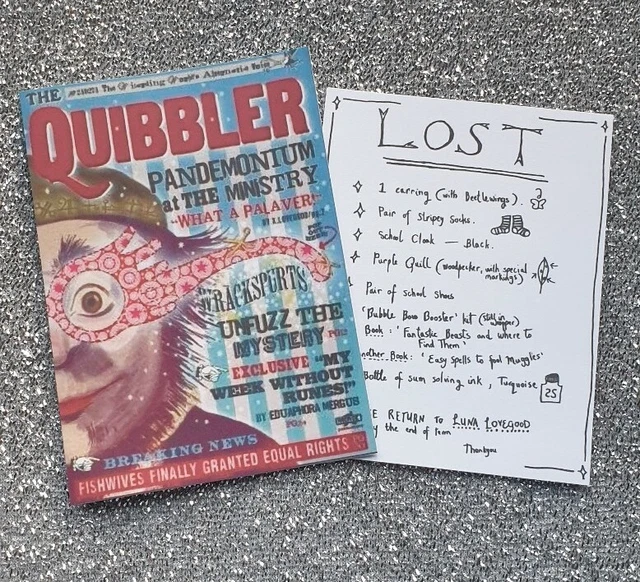 THE
The Wizarding World's Alternative Voice
QUIBBLER
PANDEMONIUM
at THE MINISTRY
"WHAT A PALAVER!"
BY X.LOVEGOOD/PG.2
WRACKSPURTS
UNFUZZ THE
MYSTERY
EXCLUSIVE "MY
WEEK WITHOUT
RUNES!"
BY EDUAPHORA MERGUS
BREAKING NEWS
FISHWIVES FINALLY GRANTED EQUAL RIGHTS
LOST
1 earring (with Beetlewings).
Pair of stripey socks.
School Cloak — Black.
Purple Quill (woodpecker, with special
markings)
Pair of school shoes
'Bubble Boo Booster' kit (still in
wrapper)
Book: 'Fantastic Beasts and where to
Find Them'
nother Book: 'Easy Spells to fool Muggles'
Bottle of sum solving ink, Turquoise
25
E RETURN TO LUNA LOVEGOOD
y the end of term
Thankyou